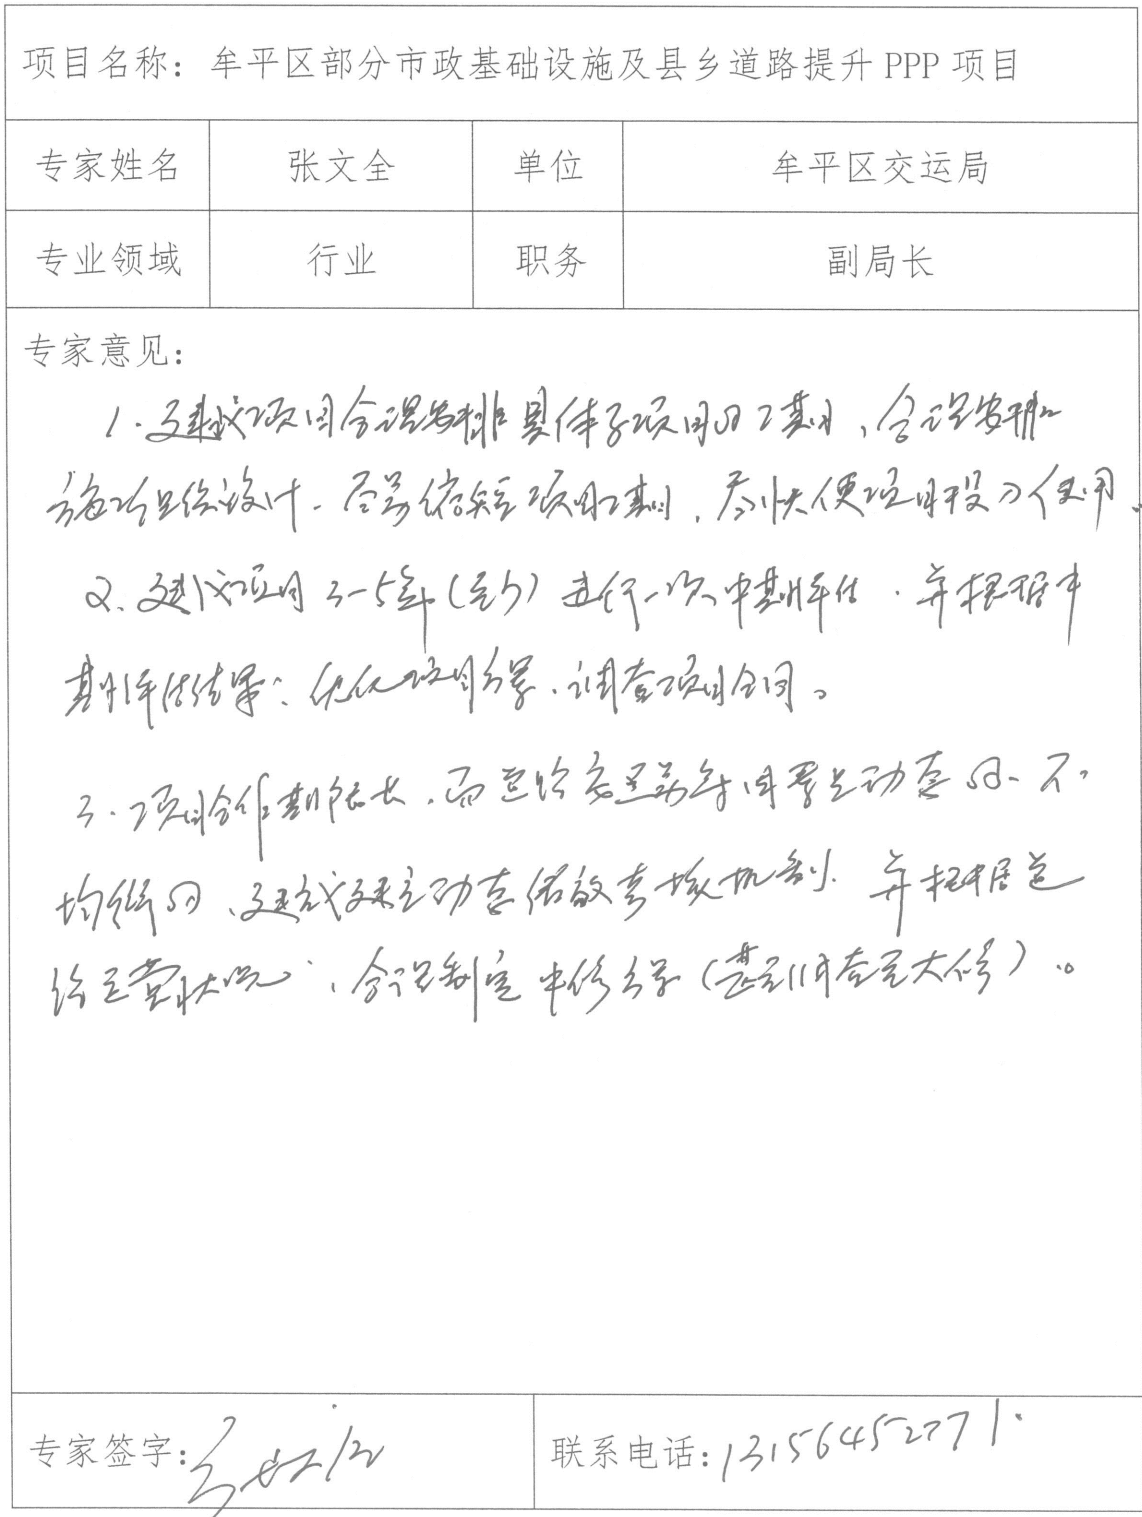 项目名称：牟平区部分市政基础设施及县乡道路提升 PPP 项目
专家姓名 张文全 单位 牟平区交运局
专业领域 行业 职务 副局长
专家意见：
1. 建议项目合理安排具体子项目的工期，合理安排
施工组织设计，尽量缩短项目工期，尽快使项目投入使用。
2、建议项目3-5年（至少）进行一次中期评估，并根据中
期评估结果，优化项目方案、调整项目合同。
3. 项目合作期限长，而道路交通 是动态的、不
均衡的，建议建立动态绩效考核机制，并根据道
路运营状况，合理制定中修方案（甚至调查至大修）。
专家签字：
联系电话：13156452771